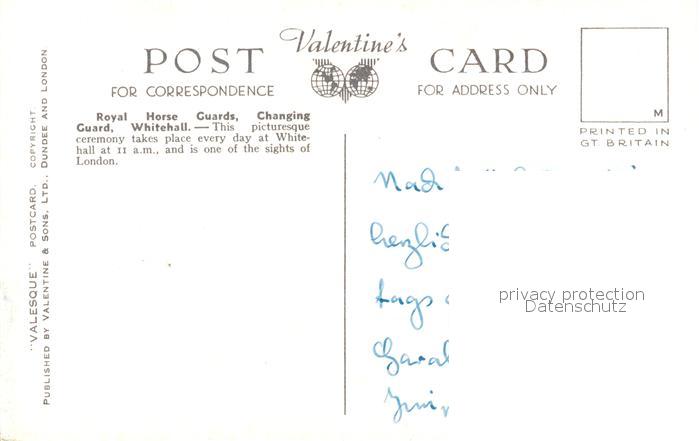 Valentine's
POST CARD
FOR CORRESPONDENCE
FOR ADDRESS ONLY
M
PRINTED IN
GT. BRITAIN
Royal Horse Guards, Changing
Guard, Whitehall. — This picturesque
ceremony takes place every day at White-
hall at 11 a.m., and is one of the sights of
London.
"VALESQUE" POSTCARD. COPYRIGHT.
PUBLISHED BY VALENTINE & SONS, LTD., DUNDEE AND LONDON
tags
privacy protection
Datenschutz